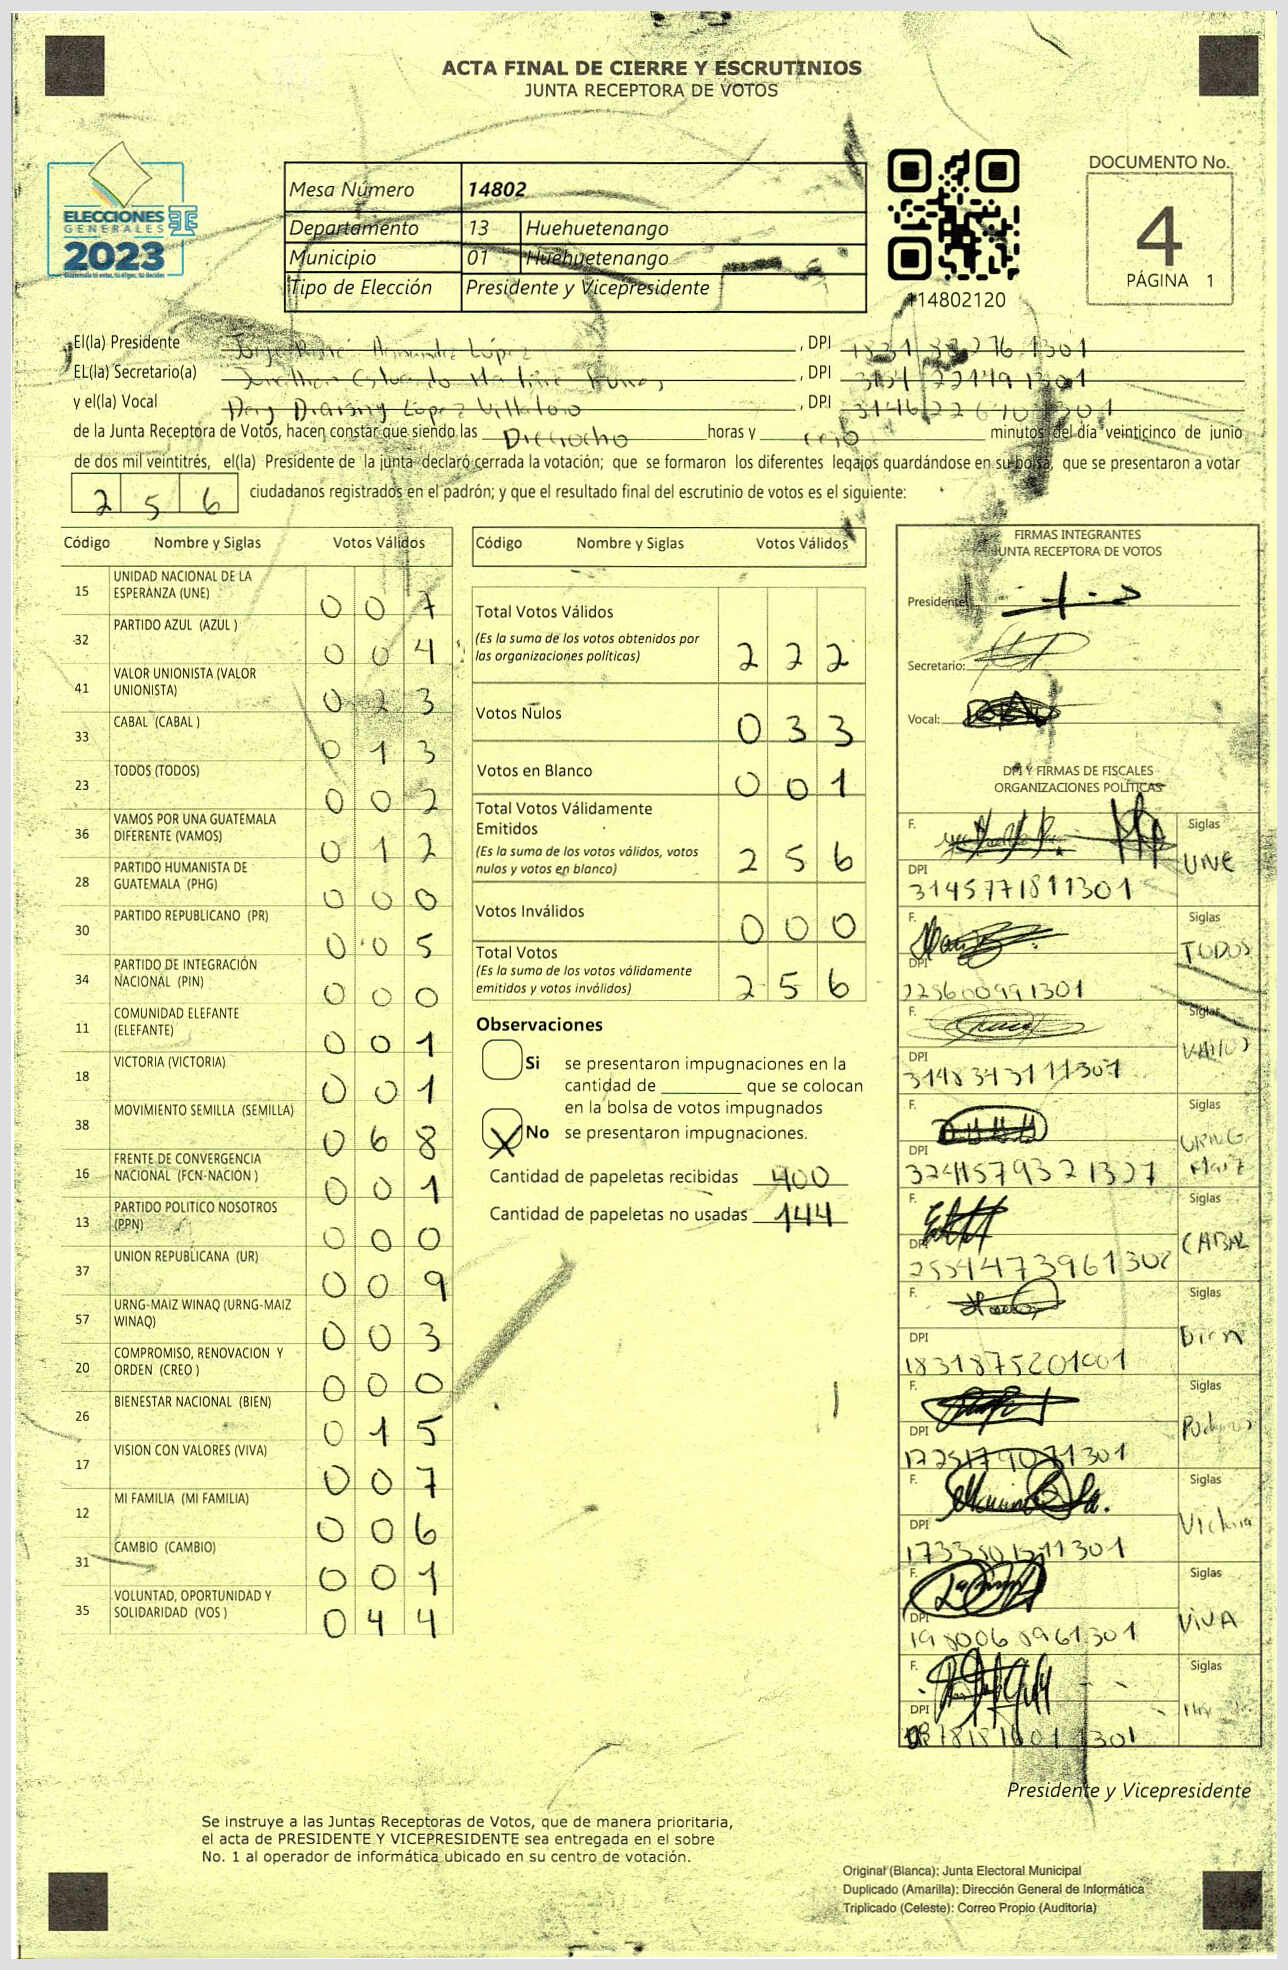 ACTA FINAL DE CIERRE Y ESCRUTINIOS
JUNTA RECEPTORA DE VOTOS
ELECCIONES
GENERALES
2023
Mesa Número 14802
Departamento 13 Huehuetenango
Municipio 01 Huehuetenango
Tipo de Elección Presidente y Vicepresidente
114802120
DOCUMENTO No.
4
PÁGINA 1
El(la) Presidente López , DPI
EL(la) Secretario(a) , DPI
y el(la) Vocal López , DPI
de la Junta Receptora de Votos, hacen constar que siendo las Dieciocho horas y cero minutos del día veinticinco de junio
de dos mil veintitrés, el(la) Presidente de la junta declaró cerrada la votación; que se formaron los diferentes legajos guardándose en su bolsa, que se presentaron a votar
256 ciudadanos registrados en el padrón; y que el resultado final del escrutinio de votos es el siguiente:
Código Nombre y Siglas Votos Válidos
15 UNIDAD NACIONAL DE LA ESPERANZA (UNE) 007
32 PARTIDO AZUL (AZUL ) 004
41 VALOR UNIONISTA (VALOR UNIONISTA) 023
33 CABAL (CABAL ) 013
23 TODOS (TODOS) 002
36 VAMOS POR UNA GUATEMALA DIFERENTE (VAMOS) 012
28 PARTIDO HUMANISTA DE GUATEMALA (PHG) 000
30 PARTIDO REPUBLICANO (PR) 005
34 PARTIDO DE INTEGRACIÓN NACIONAL (PIN) 000
11 COMUNIDAD ELEFANTE (ELEFANTE) 001
18 VICTORIA (VICTORIA) 001
38 MOVIMIENTO SEMILLA (SEMILLA) 068
16 FRENTE DE CONVERGENCIA NACIONAL (FCN-NACION ) 001
13 PARTIDO POLITICO NOSOTROS (PPN) 000
37 UNION REPUBLICANA (UR) 009
57 URNG-MAIZ WINAQ (URNG-MAIZ WINAQ) 003
20 COMPROMISO, RENOVACION Y ORDEN (CREO ) 000
26 BIENESTAR NACIONAL (BIEN) 015
17 VISION CON VALORES (VIVA) 007
12 MI FAMILIA (MI FAMILIA) 006
31 CAMBIO (CAMBIO) 001
35 VOLUNTAD, OPORTUNIDAD Y SOLIDARIDAD (VOS ) 044
Código Nombre y Siglas Votos Válidos
Total Votos Válidos
(Es la suma de los votos obtenidos por
las organizaciones políticas) 222
Votos Nulos 033
Votos en Blanco 001
Total Votos Válidamente
Emitidos
(Es la suma de los votos válidos, votos
nulos y votos en blanco) 256
Votos Inválidos 000
Total Votos
(Es la suma de los votos válidamente
emitidos y votos inválidos) 256
Observaciones
Si se presentaron impugnaciones en la
cantidad de ________ que se colocan
en la bolsa de votos impugnados
X No se presentaron impugnaciones.
Cantidad de papeletas recibidas 400
Cantidad de papeletas no usadas 144
FIRMAS INTEGRANTES
JUNTA RECEPTORA DE VOTOS
Presidente:
Secretario:
Vocal:
DPI Y FIRMAS DE FISCALES
ORGANIZACIONES POLÍTICAS
F. Siglas
UNE
DPI
3145771811301
F. Siglas
TODOS
DPI
F. Siglas
VAMOS
DPI
3148343111301
F. Siglas
URNG
Maiz
DPI
F. Siglas
CABAL
DPI
2554473961302
F. Siglas
Bien
DPI
1831875201001
F. Siglas
DPI
F. Siglas
Victoria
DPI
F. Siglas
VIVA
DPI
F. Siglas
DPI
Presidente y Vicepresidente
Se instruye a las Juntas Receptoras de Votos, que de manera prioritaria,
el acta de PRESIDENTE Y VICEPRESIDENTE sea entregada en el sobre
No. 1 al operador de informática ubicado en su centro de votación.
Original (Blanca): Junta Electoral Municipal
Duplicado (Amarilla): Dirección General de Informática
Triplicado (Celeste): Correo Propio (Auditoria)